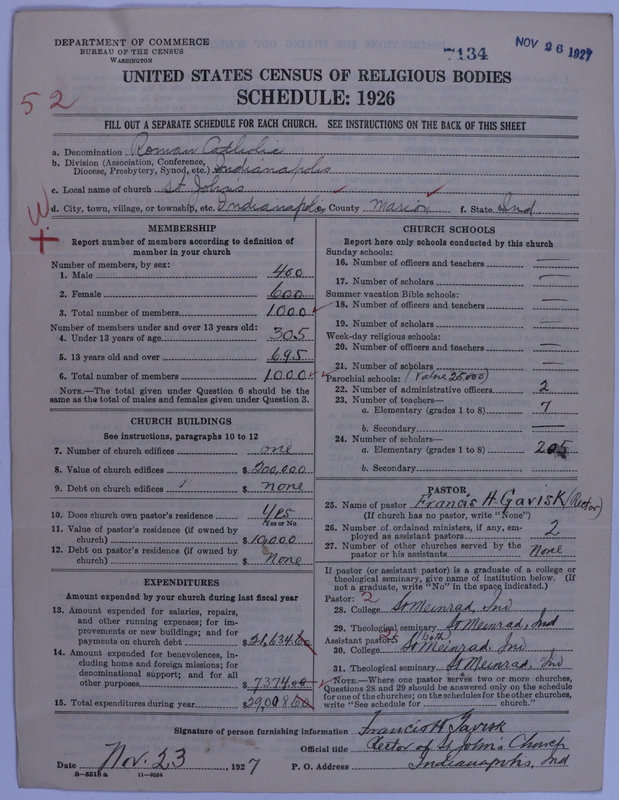 DEPARTMENT OF COMMERCE
BUREAU OF THE CENSUS
WASHINGTON
7134
NOV 26 1927
UNITED STATES CENSUS OF RELIGIOUS BODIES
SCHEDULE: 1926
52
FILL OUT A SEPARATE SCHEDULE FOR EACH CHURCH. SEE INSTRUCTIONS ON THE BACK OF THIS SHEET
a. Denomination Roman Catholic
b. Division (Association, Conference, Diocese, Presbytery, Synod, etc.) Indianapolis
c. Local name of church St John's
d. City, town, village, or township, etc. Indianapolis County Marion f. State Ind
W
MEMBERSHIP
Report number of members according to definition of
member in your church
Number of members, by sex:
1. Male 400
2. Female 600
3. Total number of members 1000
Number of members under and over 13 years old:
4. Under 13 years of age 305
5. 13 years old and over 695
6. Total number of members 1000
NOTE.—The total given under Question 6 should be
the same as the total of males and females given under Question 3.
CHURCH BUILDINGS
See instructions, paragraphs 10 to 12
7. Number of church edifices one
8. Value of church edifices $ 200,000
9. Debt on church edifices $ none
10. Does church own pastor's residence? yes
Yes or No
11. Value of pastor's residence (if owned by
church) $ 10,000
12. Debt on pastor's residence (if owned by
church) $ None
EXPENDITURES
Amount expended by your church during last fiscal year
13. Amount expended for salaries, repairs,
and other running expenses; for im-
provements or new buildings; and for
payments on church debt $ 21,634.60
14. Amount expended for benevolences, in-
cluding home and foreign missions; for
denominational support; and for all
other purposes $ 7374.00
15. Total expenditures during year $ 29,008.60
CHURCH SCHOOLS
Report here only schools conducted by this church
Sunday schools:
16. Number of officers and teachers —
17. Number of scholars —
Summer vacation Bible schools:
18. Number of officers and teachers —
19. Number of scholars —
Week-day religious schools:
20. Number of officers and teachers —
21. Number of scholars —
Parochial schools: (Value 25,000)
22. Number of administrative officers 2
23. Number of teachers—
a. Elementary (grades 1 to 8) 7
b. Secondary —
24. Number of scholars—
a. Elementary (grades 1 to 8) 205
b. Secondary
PASTOR
25. Name of pastor Francis H Gavisk (Rector)
(If church has no pastor, write "None")
26. Number of ordained ministers, if any, em-
ployed as assistant pastors 2
27. Number of other churches served by the
pastor or his assistants None
If pastor (or assistant pastor) is a graduate of a college or
theological seminary, give name of institution below. (If
not a graduate, write "No" in the space indicated.)
Pastor: 2
28. College St Meinrad, Ind
29. Theological seminary St Meinrad, Ind
Assistant pastor: both
30. College St Meinrad, Ind
31. Theological seminary St Meinrad, Ind
NOTE.—Where one pastor serves two or more churches,
Questions 28 and 29 should be answered only on the schedule
for one of the churches; on the schedules for the other churches,
write "See schedule for church."
Signature of person furnishing information Francis H Gavisk
Official title Rector of St John's Church
Date Nov. 23, 1927 P. O. Address Indianapolis, Ind
8—5518 a 11—9034